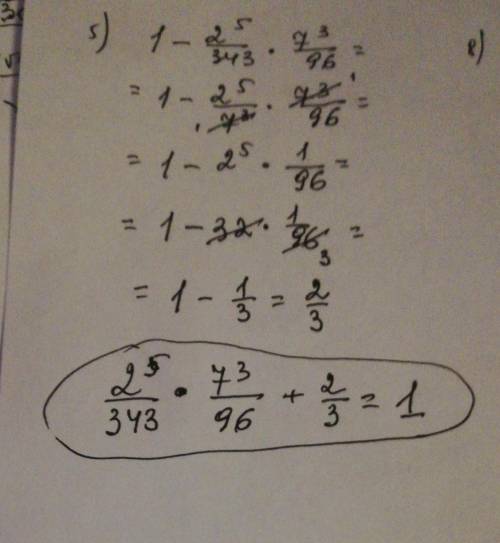 5) 1 - 2⁵/343 · 7³/96 =
= 1 - 2⁵/7³ · 7³/96 =
= 1 - 2⁵ · 1/96 =
= 1 - 32 · 1/96 =
= 1 - 1/3 = 2/3
2⁵/343 · 7³/96 + 2/3 = 1
8)